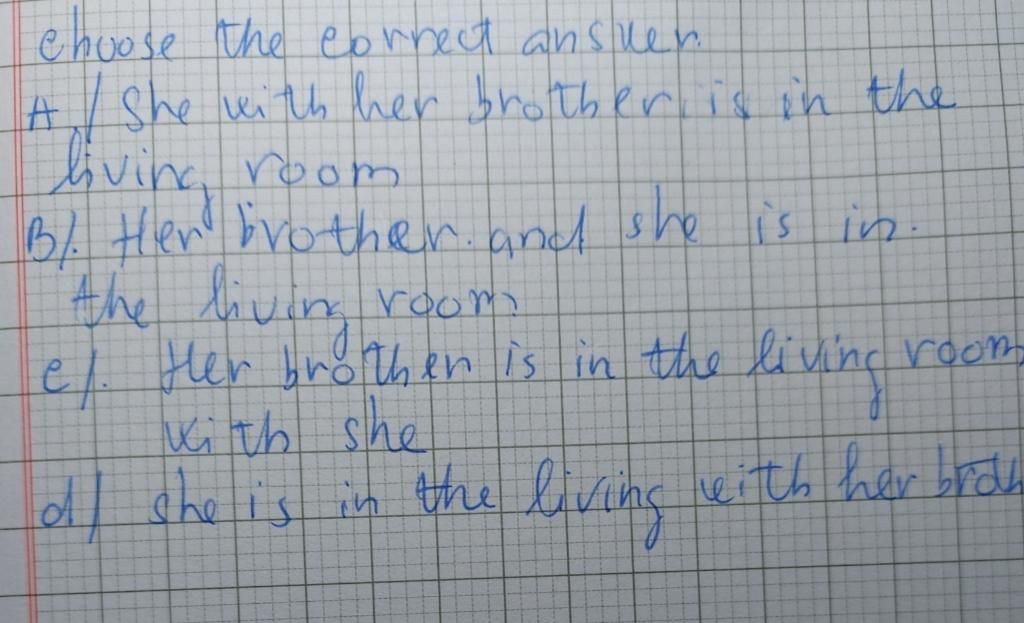 choose the correct answer.
A / She with her brother is in the
living room
B/. Her brother. and she is in.
the living room
c/. Her brother is in the living room
with she
d/ she is in the living with her broth